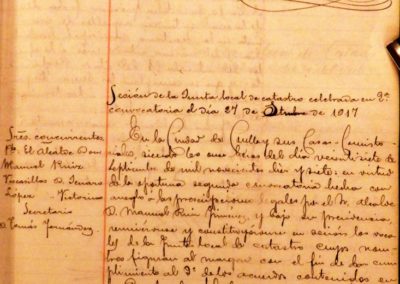 Sesión de la Junta local de catastro celebrada en 2ª
convocatoria el día 27 de 1917
Sres. concurrentes
El Alcalde Don
Manuel Ruiz
Vocales D. Genaro
López - Victorino
Secretario
D. Tomás Fernández
En la Ciudad de y sus Casas Consisto-
riales, siendo las once horas del día veintisiete de
Septiembre de mil novecientos diez y siete, en virtud
de la oportuna segunda convocatoria hecha con
arreglo a las prescripciones legales por el Sr. Alcalde
D. Manuel Ruiz y bajo su presidencia,
reunieronse y constituyeronse en sesión los voca-
les de la Junta local de catastro cuyos nom-
bres figuran al margen con el fin de dar cum-
plimiento al 9º de los acuerdos contenidos en